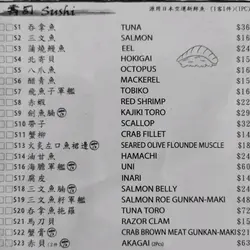 壽司 Sushi
S1 吞拿魚 TUNA $36
S2 三文魚 SALMON $16
S3 蒲燒鰻魚 EEL
S4 北寄貝 HOKIGAI $15
S5 八爪魚 OCTOPUS $16
S6 醋青魚 MACKEREL $15
S7 飛魚子軍艦 TOBIKO $16
S8 赤蝦 RED SHRIMP $22
S9 劍魚腩 KAJIKI TORO $29
S10 帶子 SCALLOP $32
S11 蟹柳 CRAB FILLET $14
S13 火炙左口魚裙邊 SEARED OLIVE FLOUNDE MUSCLE $18
S14 油甘魚 HAMACHI $24
S16 海膽軍艦 UNI $
S17 腐皮 INARI $14
S18 三文魚腩 SALMON BELLY $24
S19 三文魚籽軍艦 SALMON ROE GUNKAN-MAKI $48
S20 吞拿魚拖羅 TUNA TORO $
S21 馬刀貝 RAZOR CLAM $15
S22 蟹膏 CRAB BROWN MEAT GUNKAN-MAKI $23
S23 赤貝 AKAGAI